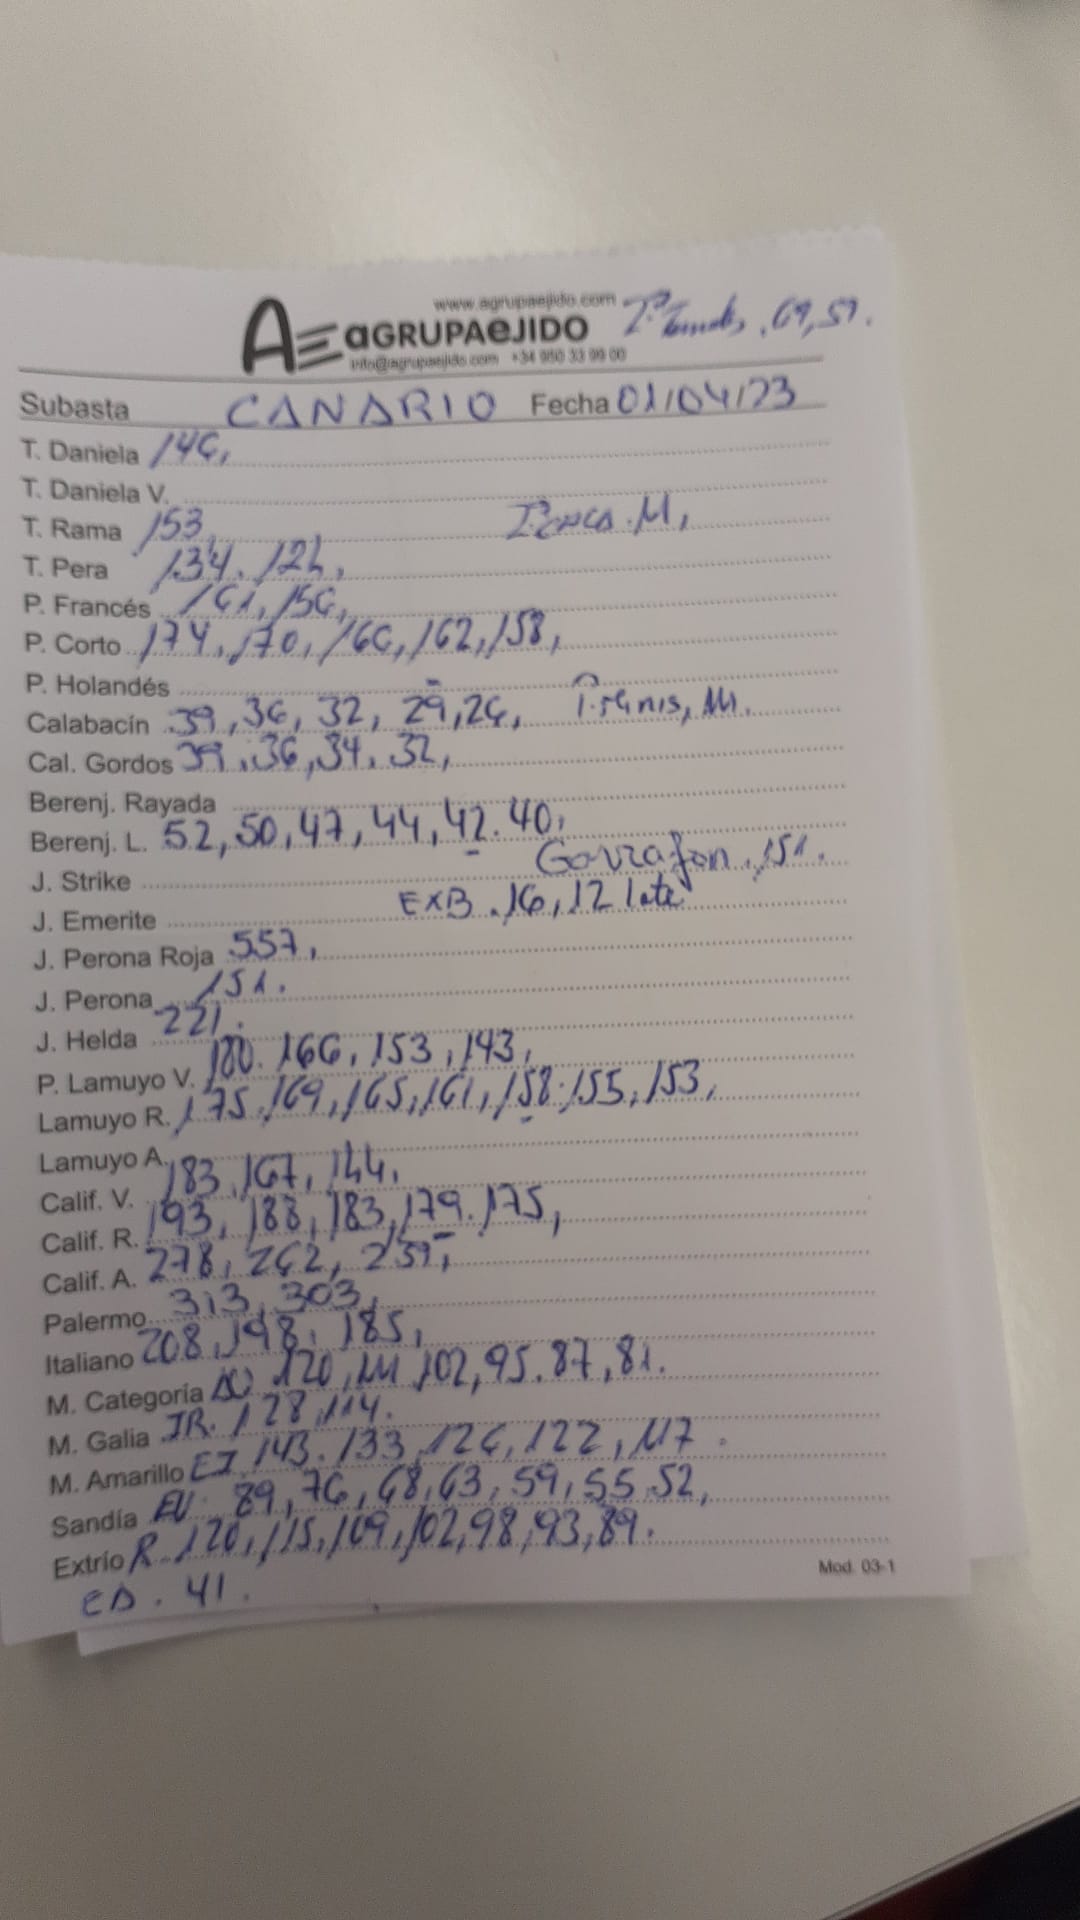 www.agrupaejido.com
AE aGRUPAeJIDO 69, 57.
info@agrupaejido.com +34 950 33 99 00
Subasta CANARIO Fecha 01/04/23
T. Daniela 146,
T. Daniela V.
T. Rama 153,
T. Pera 134. 124,
P. Francés 161, 156,
P. Corto 174, 170, 166, 162, 158,
P. Holandés
Calabacín 39, 36, 32, 29, 26, M.
Cal. Gordos 39, 36, 34. 32,
Berenj. Rayada
Berenj. L. 52, 50, 47, 44, 42. 40,
Gorrafon, 151.
J. Strike
EXB. 16, 12 late
J. Emerite
J. Perona Roja 557,
J. Perona 151.
J. Helda 221.
P. Lamuyo V. 180. 166, 153, 143,
Lamuyo R. 175, 169, 165, 161, 158. 155, 153,
Lamuyo A.
Calif. V. 183, 167, 144,
Calif. R. 193, 188, 183, 179. 175,
Calif. A. 278, 262, 239,
Palermo 313, 303,
Italiano 208, 198, 185,
M. Categoría 120, 111, 102, 95. 87, 81.
M. Galia JR. 128, 114.
M. Amarillo EJ. 143. 133, 126, 122, 117.
Sandía 89, 76, 68, 63, 59, 55, 52,
Extrío R 120, 115, 109, 102, 98, 93, 89.
ED. 41.
Mod. 03-1